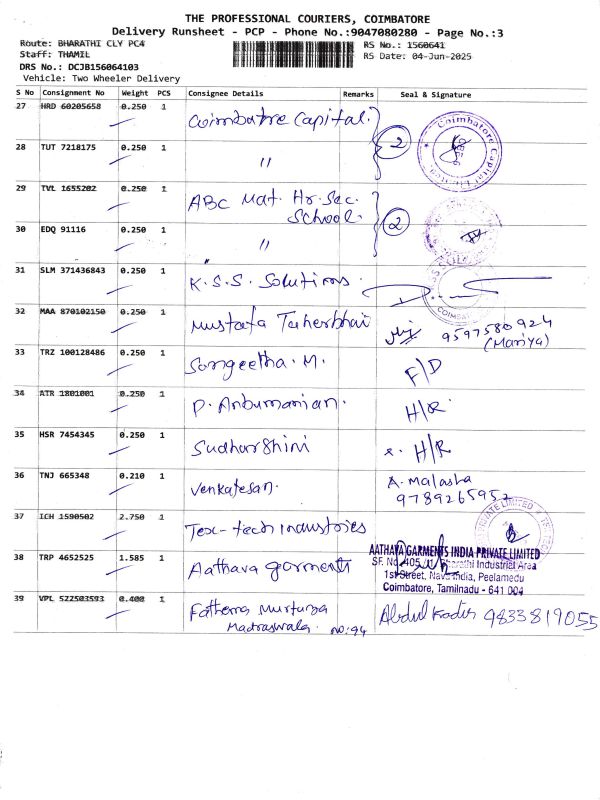 THE PROFESSIONAL COURIERS, COIMBATORE
Delivery Runsheet - PCP - Phone No.:9047080280 - Page No.:3
Route: BHARATHI CLY PC4 RS No.: 1560641
Staff: THAMIL RS Date: 04-Jun-2025
DRS No.: DCJB156064103
Vehicle: Two Wheeler Delivery
S No Consignment No Weight PCS Consignee Details Remarks Seal & Signature
27 HRD 60205658 0.250 1 Coimbatore Capital. 2 Coimbatore Capital Limited
28 TUT 7218175 0.250 1 "
29 TVL 1655202 0.250 1 ABC Mat. Hr. Sec. School. 2
30 EDQ 91116 0.250 1 "
31 SLM 371436843 0.250 1 K.S.S. Solutions. COIMBA
32 MAA 870102150 0.250 1 Mustafa Taherbhai 9597580924 (Mariya)
33 TRZ 100128486 0.250 1 Sangeetha. M. F/D
34 ATR 1801001 0.250 1 P. Anbumanian. H/R
35 HSR 7454345 0.250 1 Sudharshini H/R
36 TNJ 665348 0.210 1 Venkatesan. A. Malasha 9789265957
37 ICH 1590502 2.750 1 Tex-tech industries PRIVATE LIMITED
38 TRP 4652525 1.585 1 Aathava garments AATHAVA GARMENTS INDIA PRIVATE LIMITED
SF. No. 405, Bharathi Industrial Area
1st Street, Nava India, Peelamedu
Coimbatore, Tamilnadu - 641 004
39 VPL 522503593 0.400 1 Fathema Murtuza Abdul Kadir 9833819055
Madraswala. no: 94